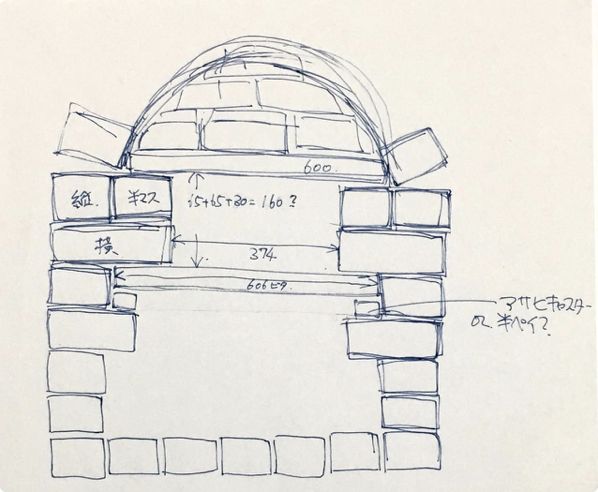 600.
縦. 半マス
65+65+30=160?
横
374
606ピタ.
アサヒキャスター
or. 半ペイ?